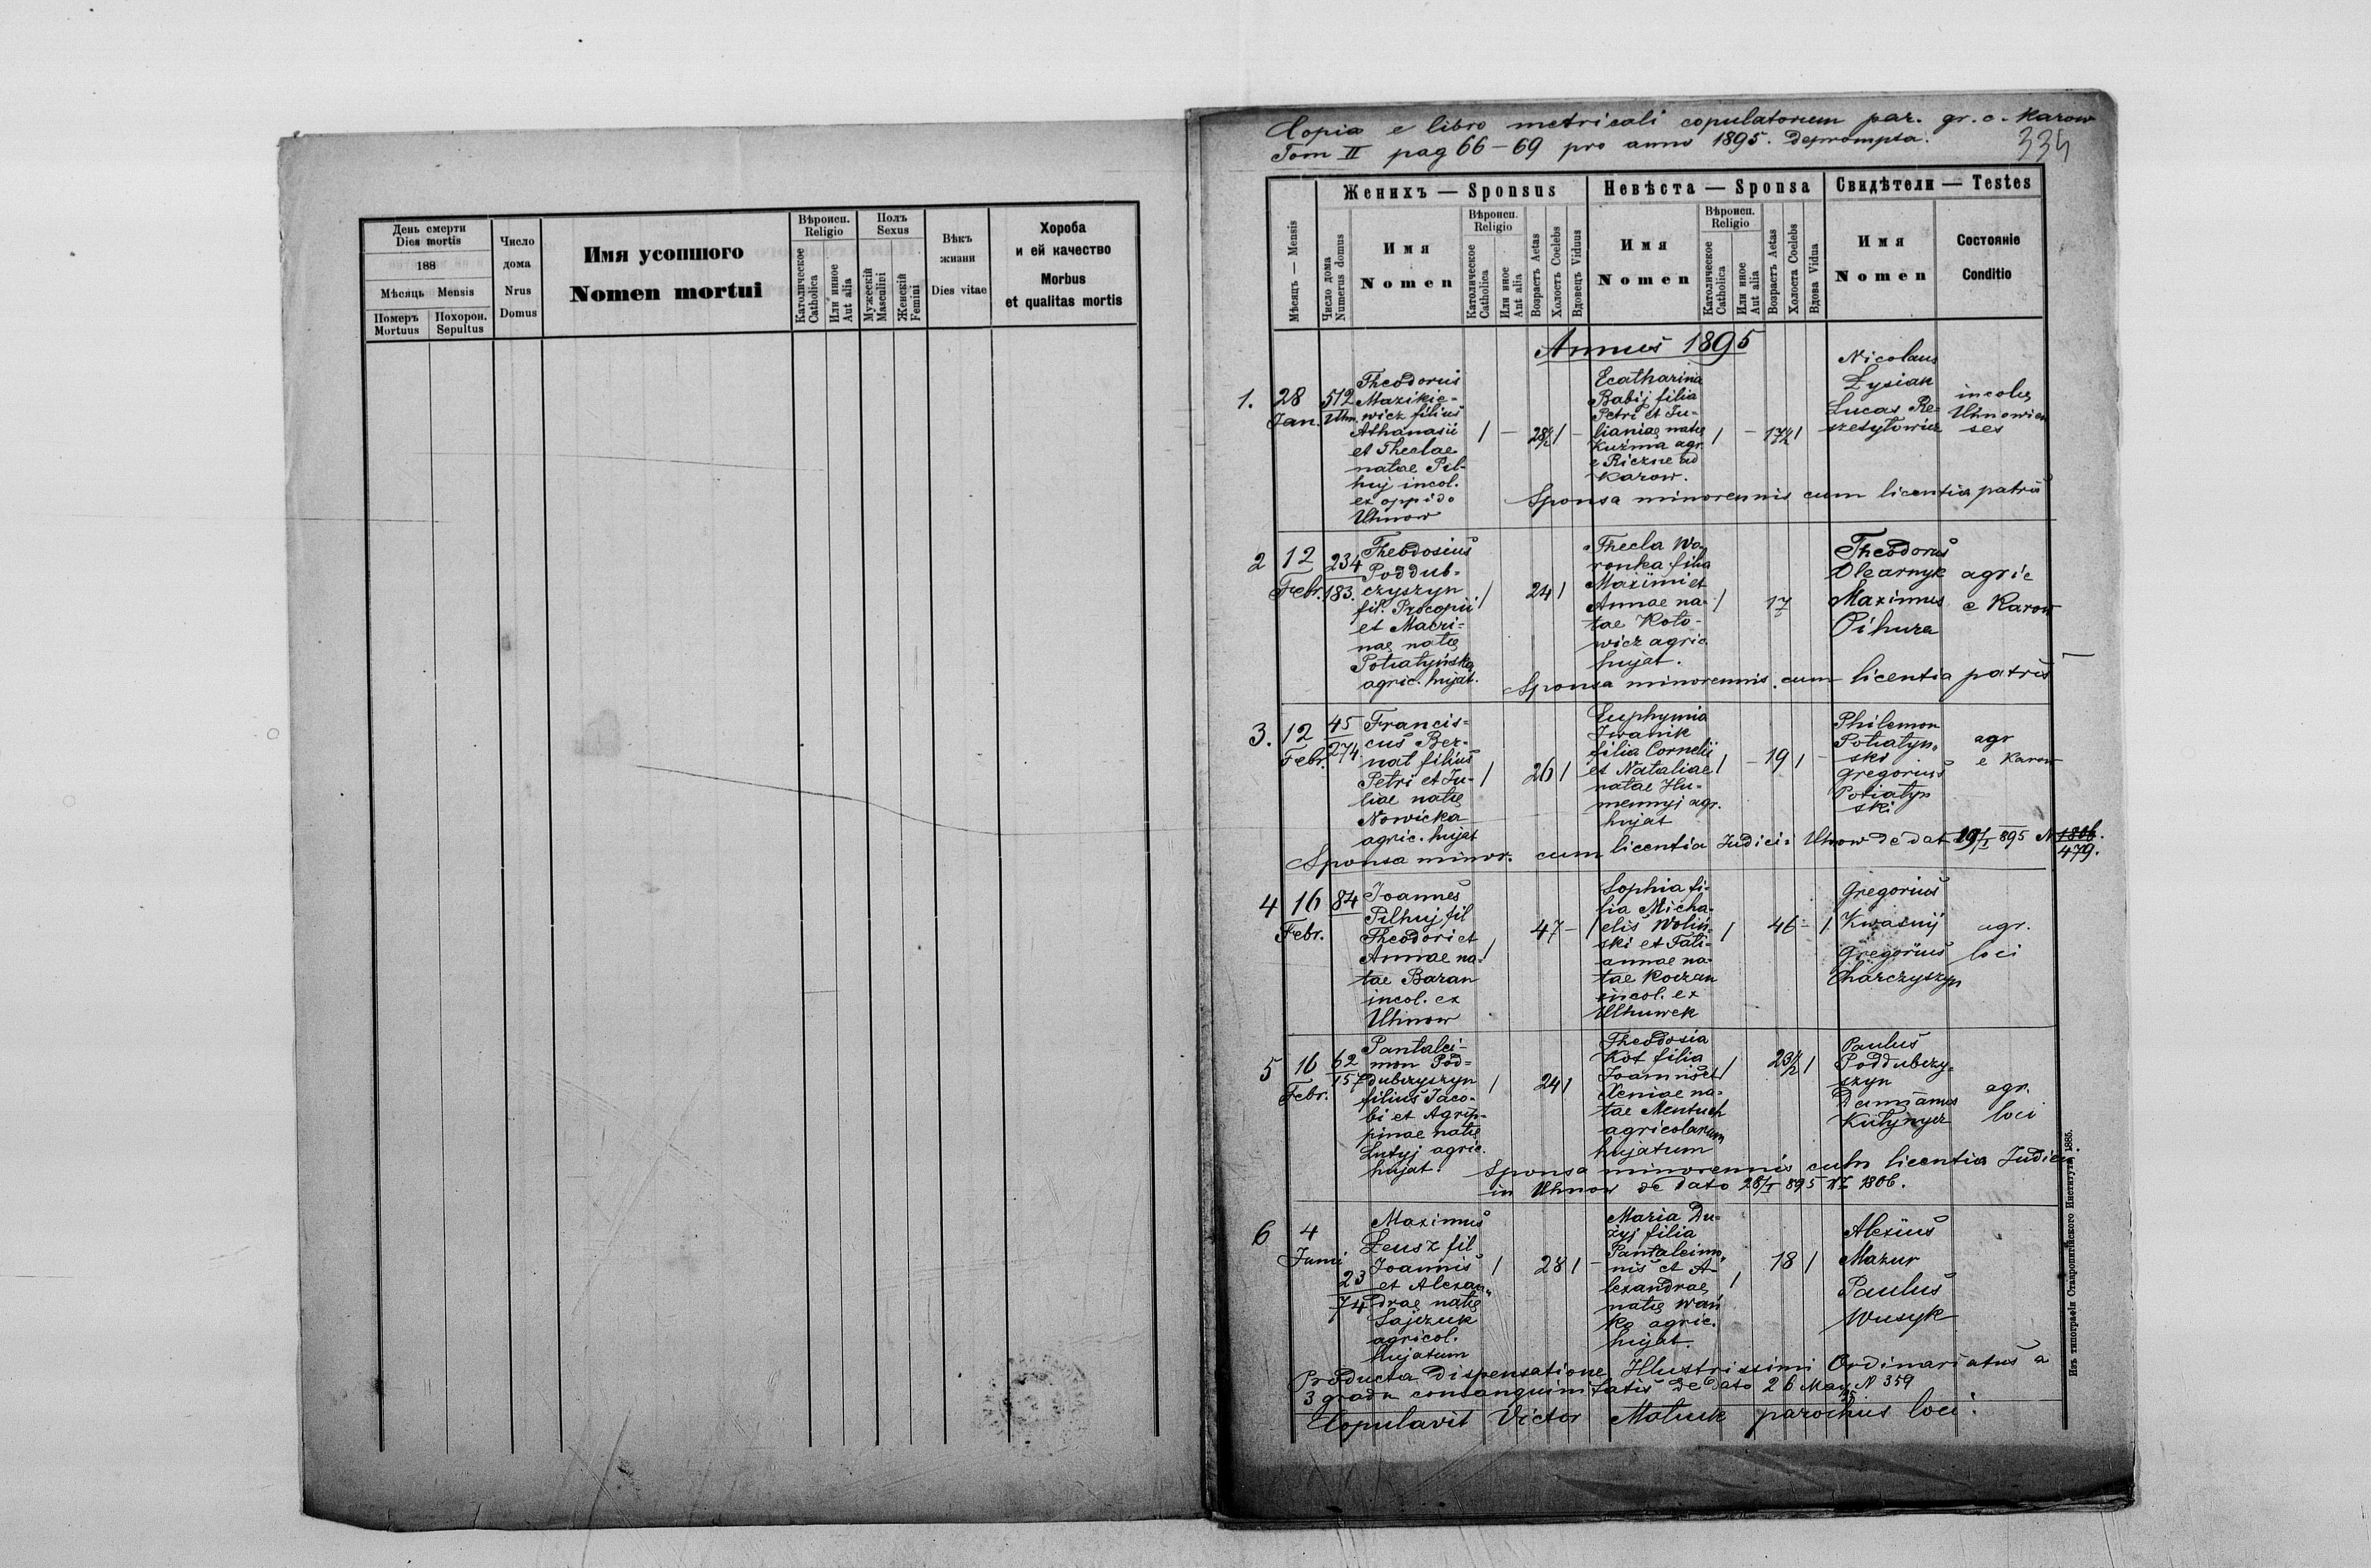 День смерти
Dies mortis
188
Мѣсяць Mensis
Померъ
Mortuus
Похорон.
Sepultus
Число
дома
Nrus
Domus
Имя усопшого
Nomen mortui
Вѣроисп.
Religio
Католическое
Catholica
Или инное
Aut alia
Полъ
Sexus
Мужескій
Masculini
Женскій
Femini
Вѣкъ
жизни
Dies vitae
Хороба
и ей качество
Morbus
et qualitas mortis
Copia e libro metricali copulatorum par. gr. c. Karow
Tom II pag 66-69 pro anno 1895. Deprompta.
334
Женихъ — Sponsus
Невѣста — Sponsa
Свидѣтели — Testes
Мѣсяць — Mensis
Число дома
Numerus domus
Имя
Nomen
Вѣроисп.
Religio
Католическое
Catholica
Или инное
Aut alia
Возрастъ Aetas
Холостъ Coelebs
Вдовецъ Viduus
Имя
Nomen
Вѣроисп.
Religio
Католическое
Catholica
Или иное
Aut alia
Возрастъ Aetas
Холоста Coelebs
Вдова Vidua
Имя
Nomen
Состояніе
Conditio
Annus 1895
1.
28
Jan.
512
Uhn.
Theodorus
Mazikie-
wicz filius
Athanasii
et Theclae
natae Pil-
huj incol.
ex oppido
Uhnow
/ - 28½ / -
Ecatharina
Babij filia
Petri et Ju-
lianiae natę
Kuźma agr.
e Riczne ad
Karow.
/ - 17½ /
Nicolaus
Łysiak
Lucas Re-
szetyłowicz
incolę
Uhnowien
ses
Sponsa minorennis cum licentia patris
2
12
Febr.
234
183.
Theodosius
Poddub-
czyszyn
fil. Procopii
et Macri-
nae natę
Potiatyńska
agric. hujat.
/ 24 /
Thecla Wo
ronka filia
Maximi et
Annae na-
tae Koto-
wicz agric
hujat.
/ 17
Theodorus
Olearnyk
Maximus
Pihura
agric
e Karow
Sponsa minorennis cum licentia patris
3.
12
Febr.
45
274
Francis-
cus Ber-
nat filius
Petri et Ju-
liae natę
Nowicka
agric. hujat
/ 26 /
Euphymia
Iwanik
filia Cornelii
et Nataliae
natae Hu-
mennyj agr.
hujat
/ - 19 / -
Philemon
Potiatyn-
ski
Gregorius
Potiatyn
ski
agr
e Karow
Sponsa minor. cum licentia Judici: Uhnow de dat 19/I 895 N 1806.
479.
4
16
Febr.
84
Joannes
Pilhuj fil
Theodori et
Annae na-
tae Baran
incol. ex
Uhnow
/ 47 - /
Sophia fi-
lia Micha-
elis Woliń-
ski et Tati-
annae na-
tae Koczan
incol. ex
Ulhuwek
/ 46 - /
Gregorius
Kwasnij
Gregorius
Charczyszyn
agr.
loci
5
16
Febr.
62
157
Pantalei-
mon Pod-
dubczyszyn
filius Jaco-
bi et Agrip-
pinae natę
Lutyj agric.
hujat.
/ 24 /
Theodosia
Kot filia
Joannis et
Xeniae na-
tae Mentuch
agricolarum
hujatum
/ 23½ /
Paulus
Poddubczy-
szyn
Damianus
Kutynycz
agr.
loci
Sponsa minorennis cum licentia Judicii
in Uhnow de dato 28/I 895 N 1806.
6
4
Junii
23
74
Maximus
Leusz fil
Joannis
et Alexan-
drae natę
Sajczuk
agricol.
hujatum
/ 28 / -
Maria Du-
żyj filia
Pantaleimo-
nis et A-
lexandrae
natę Wań
ko agric.
hujat.
/ 18 /
Alexius
Mazur
Paulus
Wusyk
Producta Dispensatione Illustrissimi Ordinariatus a
3 gradu consanguinitatis de dato 26 Maji N 359
Copulavit Victor Matiuk parochus loci.
Изъ типографіи Ставропигійского Института, 1885.